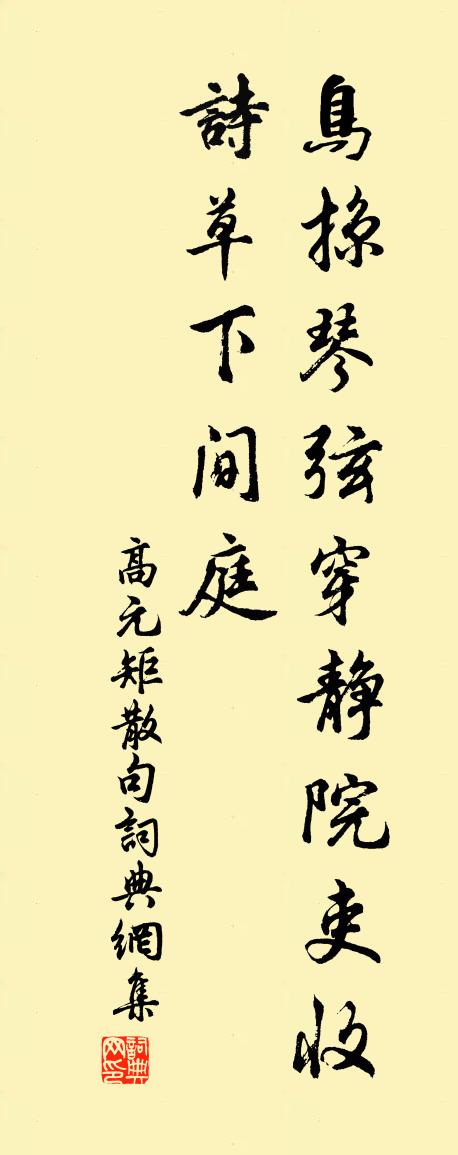 鳥掠琴弦穿靜院吏收
詩草下間庭
高元矩散句詞典網集
詞典网印